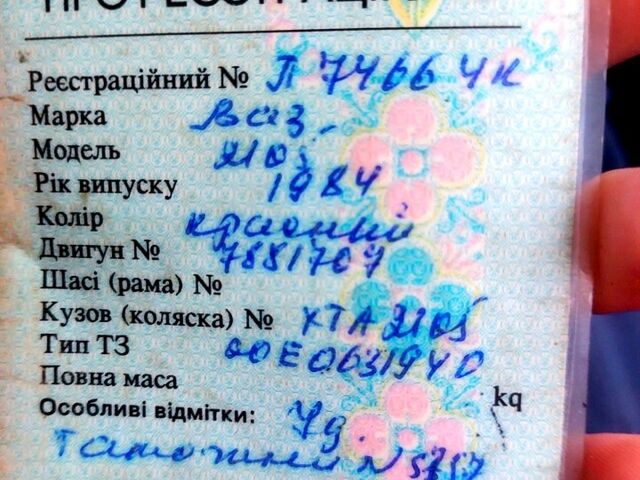 Реєстраційний № П 7466 ЧК
Марка Ваз
Модель 2105
Рік випуску 1984
Колір красный
Двигун № 7881709
Шасі (рама) №
Кузов (коляска) № ХТА 2105
Тип ТЗ 00Е0631940
Повна маса kq
Особливі відмітки:
Таможний N